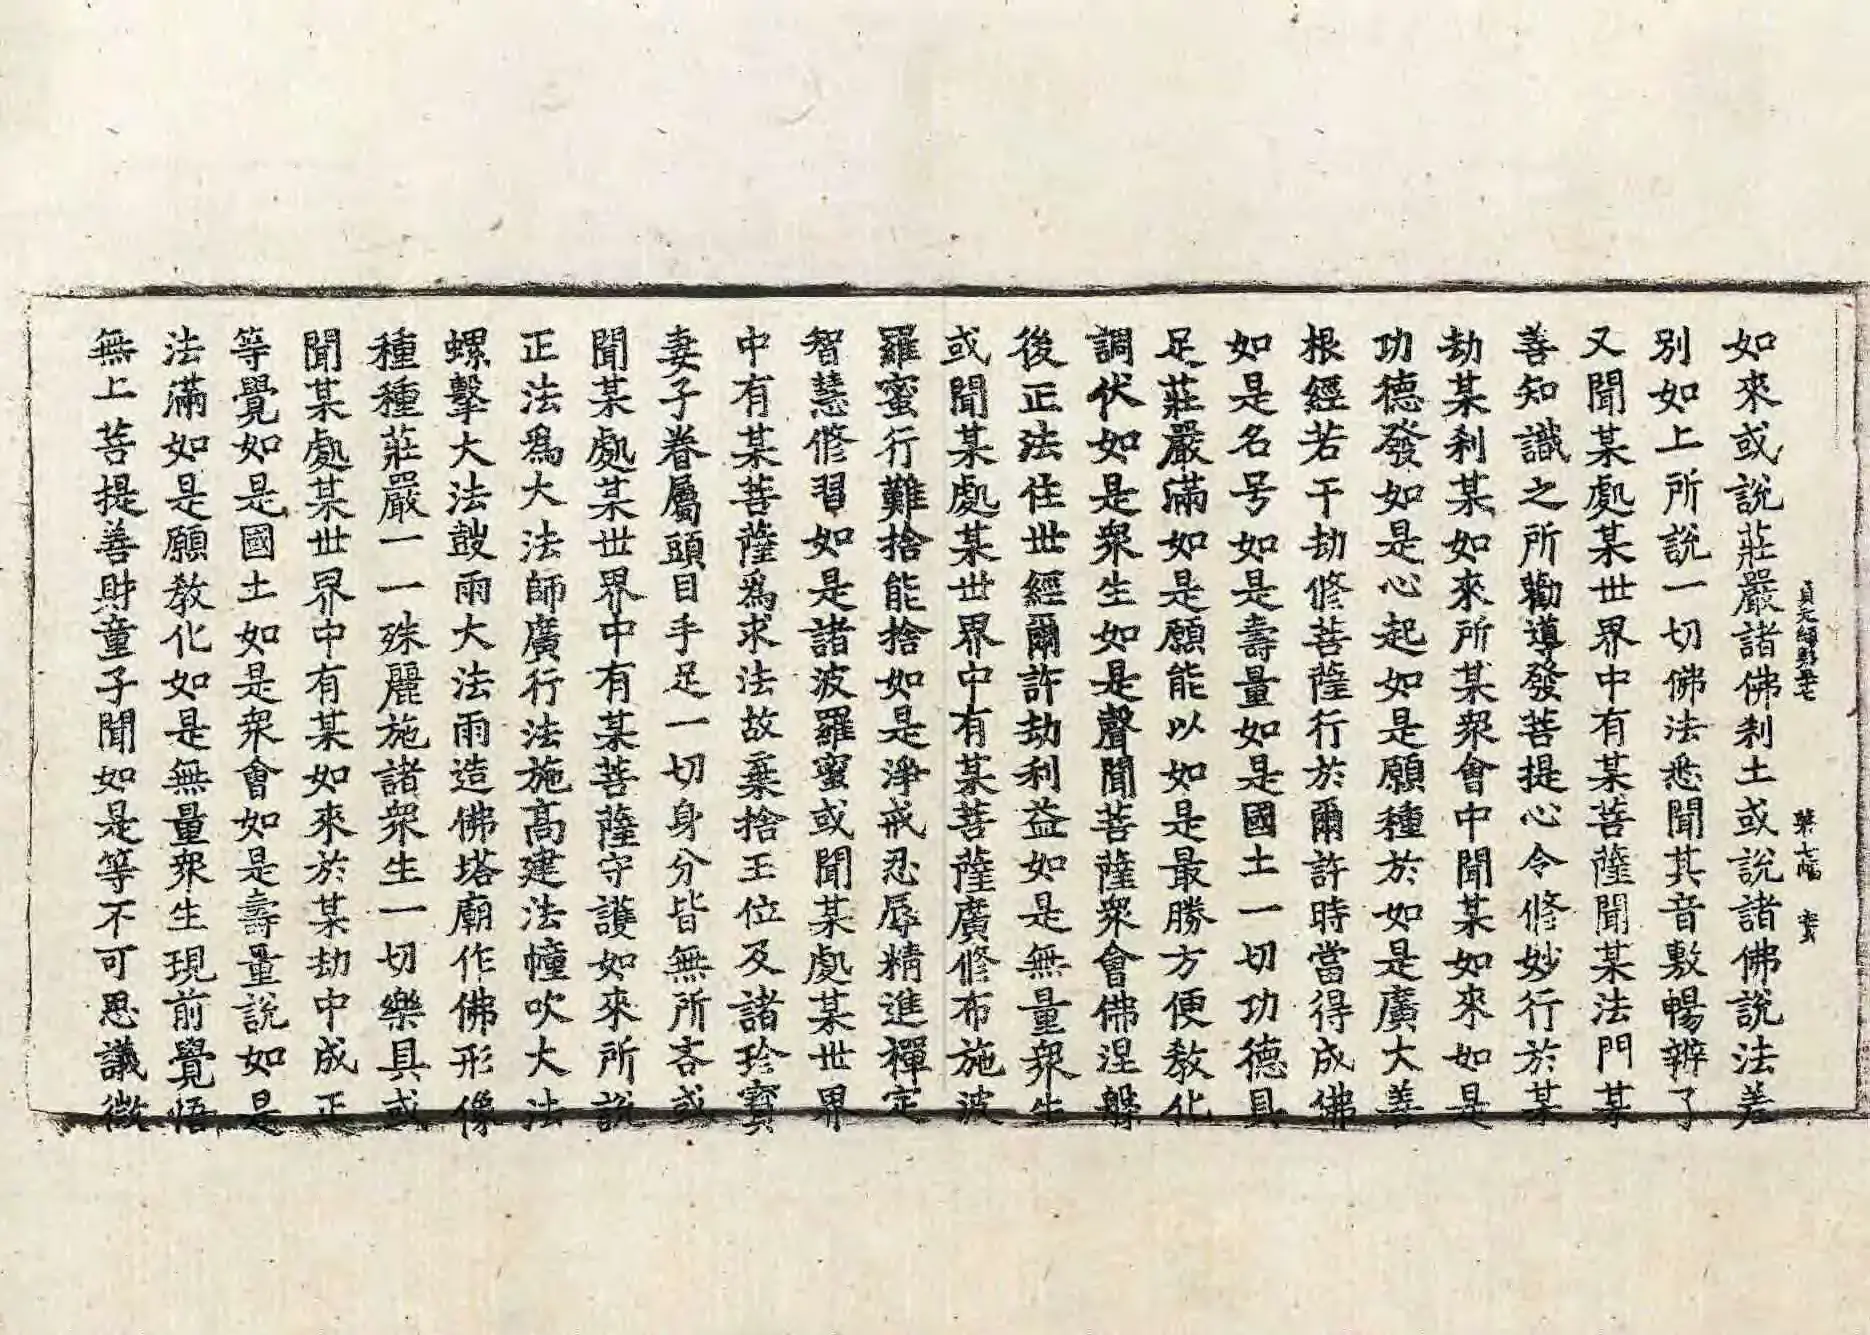 如來或說莊嚴諸佛刹土或說諸佛說法差
別如上所說一切佛法悉聞其音敷暢辨了
又聞某處某世界中有某菩薩聞某法門某
善知識之所勸導發菩提心令修妙行於某
劫某刹某如來所某衆會中聞某如來如是
功德發如是心起如是願種於如是廣大善
根經若干劫修菩薩行於爾許時當得成佛
如是名号如是壽量如是國土一切功德具
足莊嚴滿如是願能以如是最勝方便教化
調伏如是衆生如是聲聞菩薩衆會佛涅槃
後正法住世經爾許劫利益如是無量衆生
或聞某處某世界中有某菩薩廣修布施波
羅蜜行難捨能捨如是淨戒忍辱精進禪定
智慧修習如是諸波羅蜜或聞某處某世界
中有某菩薩爲求法故棄捨王位及諸珍寶
妻子眷屬頭目手足一切身分皆無所吝或
聞某處某世界中有某菩薩守護如來所說
正法爲大法師廣行法施高建法幢吹大法
螺擊大法鼓雨大法雨造佛塔廟作佛形像
種種莊嚴一一殊麗施諸衆生一切樂具或
聞某處某世界中有某如來於某劫中成正
等覺如是國土如是衆會如是壽量說如是
法滿如是願教化如是無量衆生現前覺悟
無上菩提善財童子聞如是等不可思議微